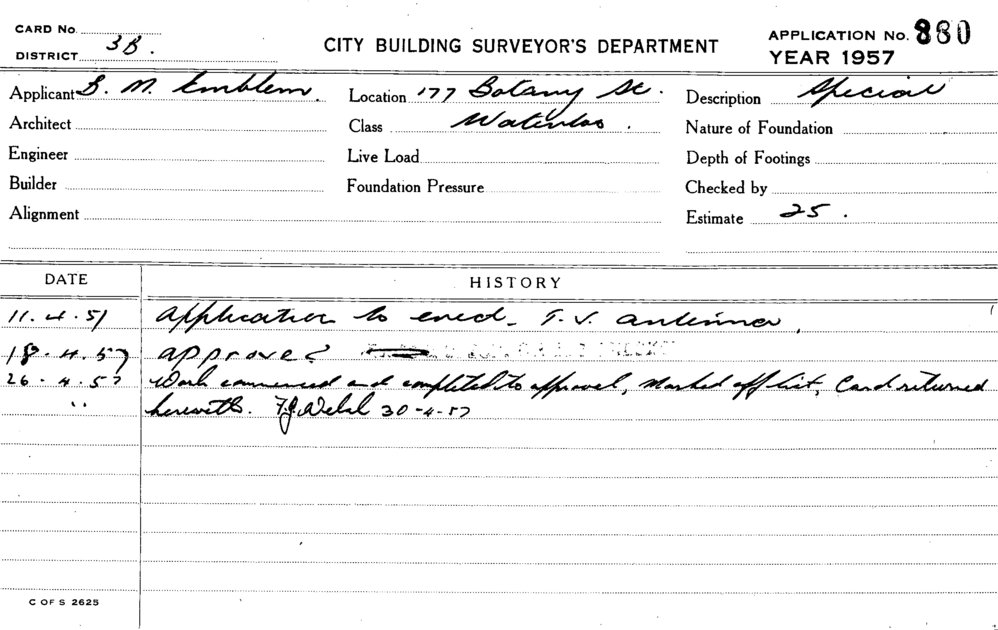 CARD No.
DISTRICT 3B.
CITY BUILDING SURVEYOR'S DEPARTMENT
APPLICATION No. 880
YEAR 1957
Applicant S. M. Emblem. Location 177 Botany St. Description Special
Architect Class Waterloo. Nature of Foundation
Engineer Live Load Depth of Footings
Builder Foundation Pressure Checked by
Alignment Estimate 25.
DATE HISTORY
11.4.57 Application to erect T.V. antenna.
18.4.57 approved
26.4.57 Work commenced and completed to approval, Marked off list, Card returned
" herewith. F.J. Welsh 30-4-57
C OF S 2625